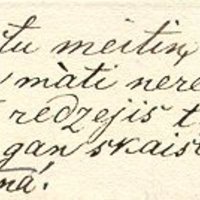 tu meitin,
māti nere
redzejis t
gan skais
mā!